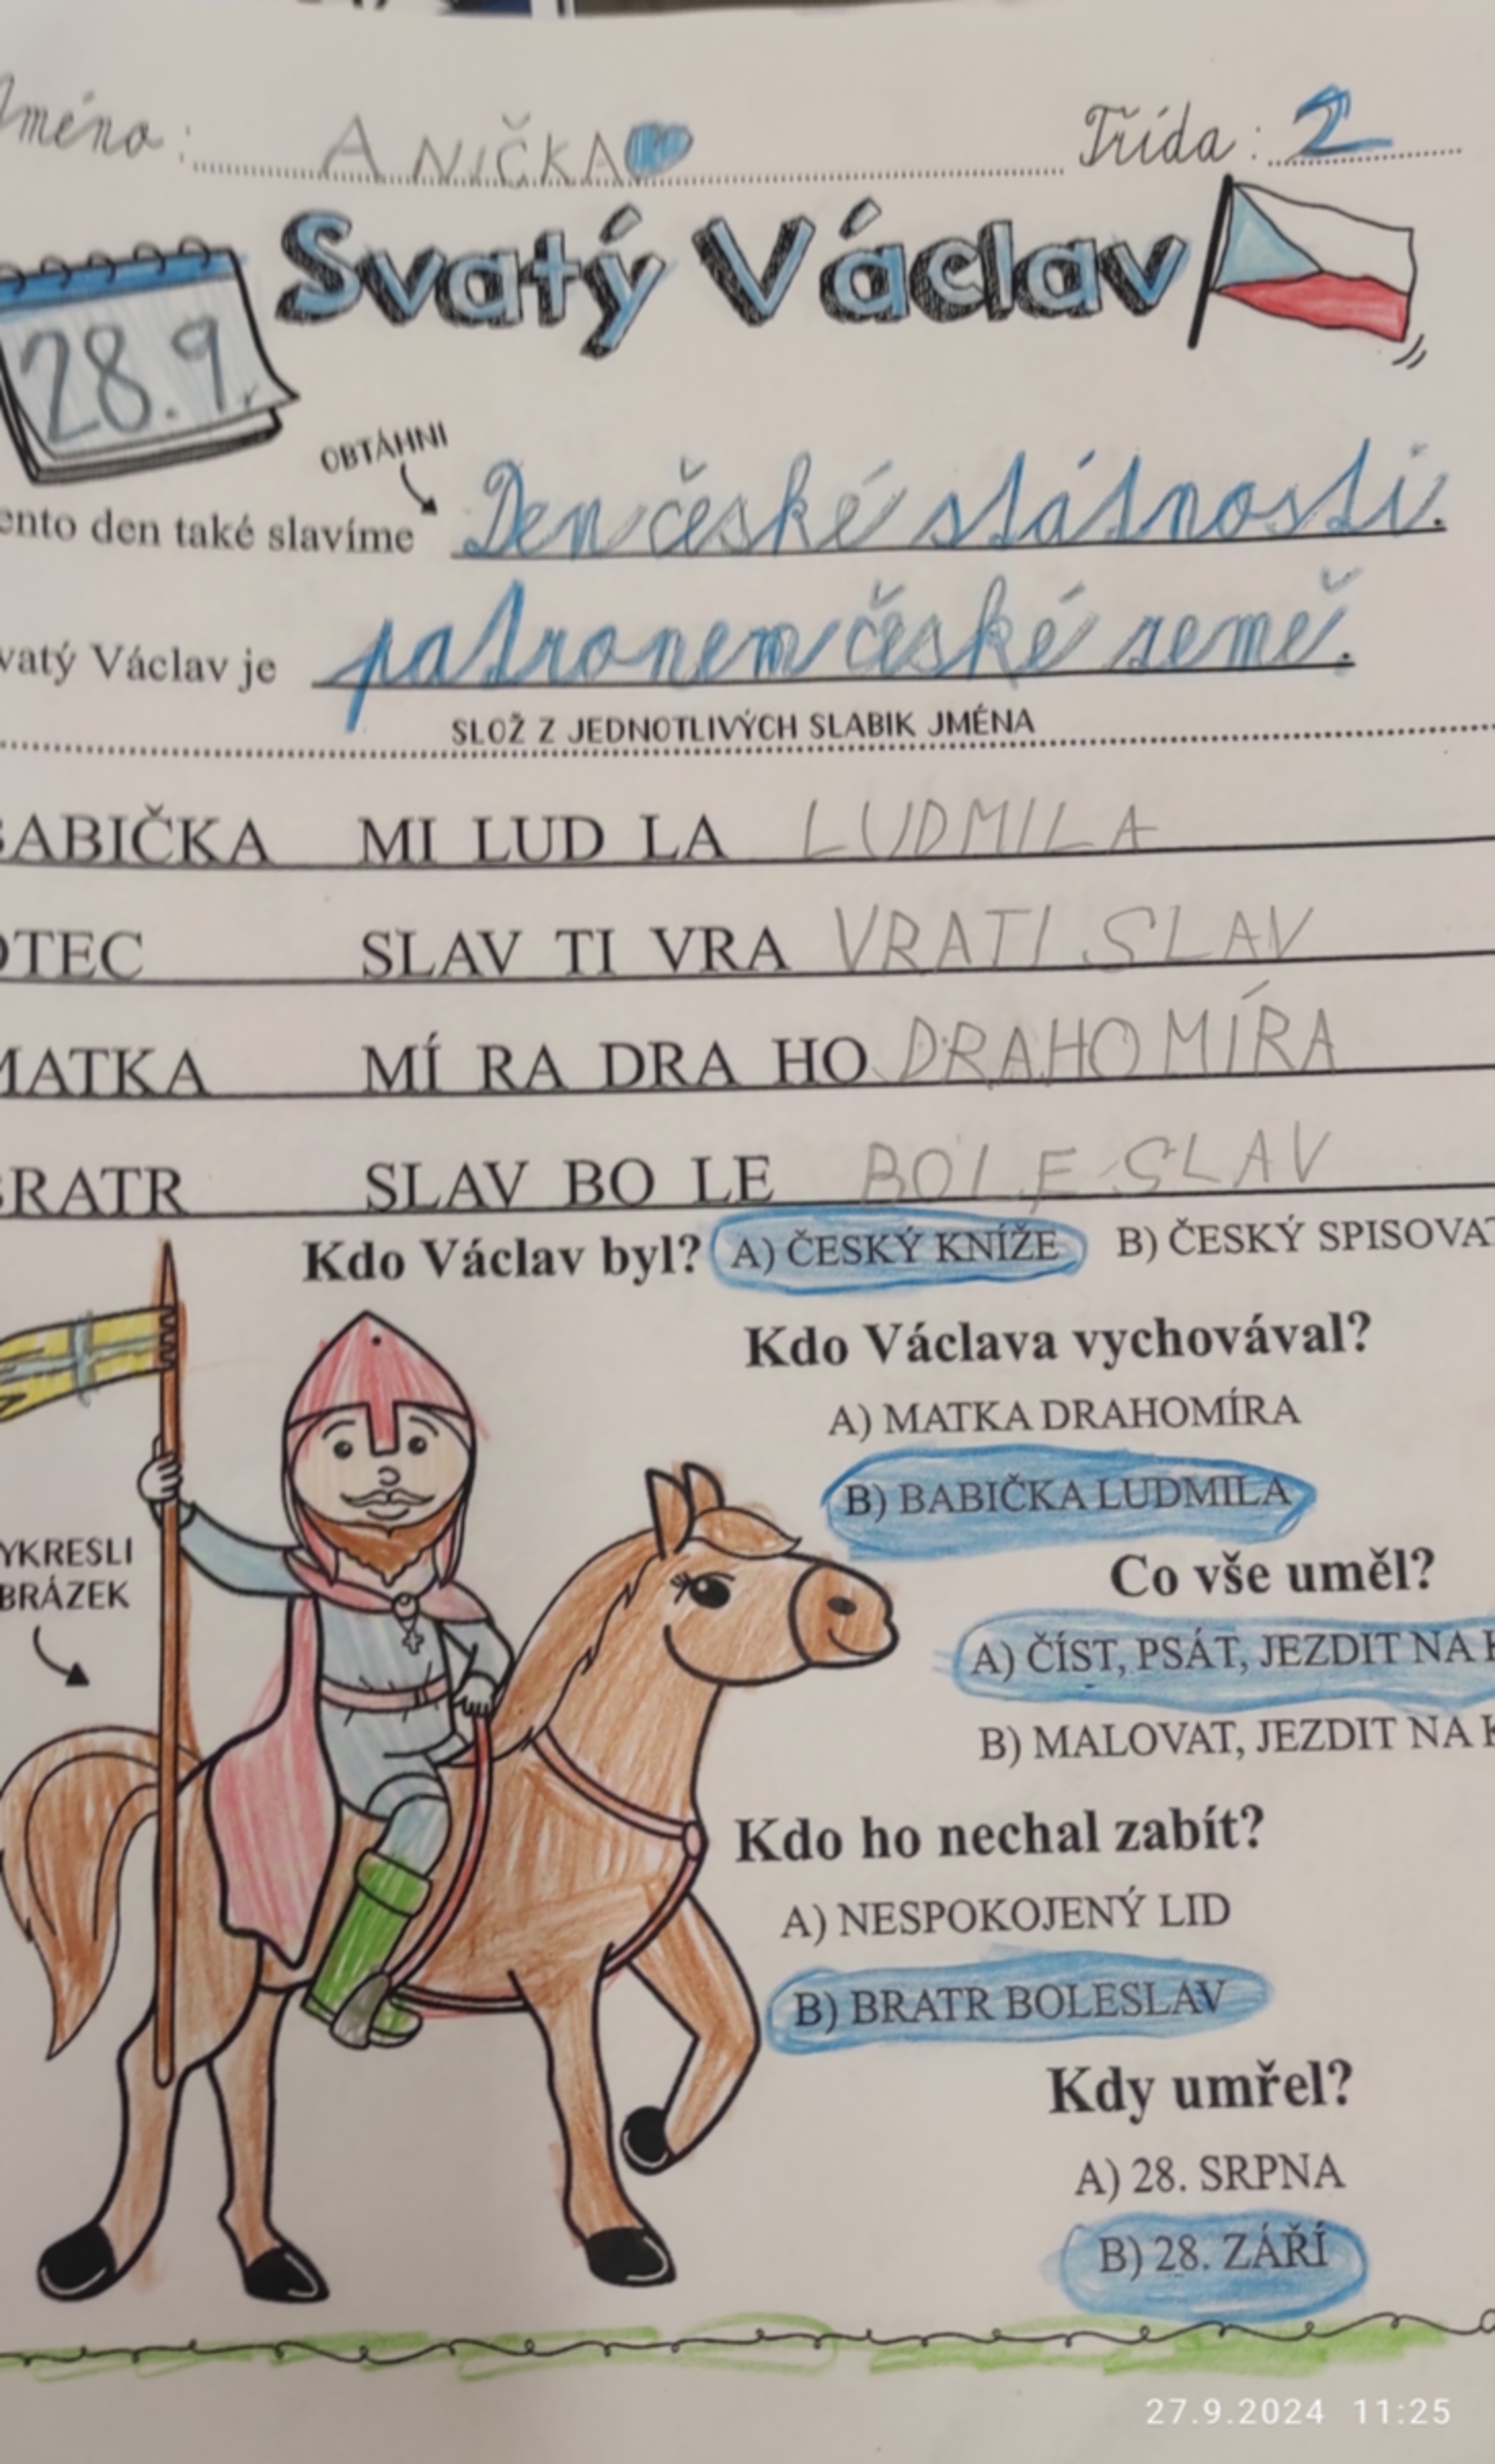 Jméno: ANIČKA Třída: 2
Svatý Václav
28.9.
OBTÁHNI
ento den také slavíme Den české státnosti.
vatý Václav je patronem české země.
SLOŽ Z JEDNOTLIVÝCH SLABIK JMÉNA
BABIČKA MI LUD LA LUDMILA
OTEC SLAV TI VRA VRATISLAV
MATKA MÍ RA DRA HO DRAHOMÍRA
BRATR SLAV BO LE BOLESLAV
Kdo Václav byl? A) ČESKÝ KNÍŽE B) ČESKÝ SPISOVAT
Kdo Václava vychovával?
A) MATKA DRAHOMÍRA
B) BABIČKA LUDMILA
YKRESLI
BRÁZEK
Co vše uměl?
A) ČÍST, PSÁT, JEZDIT NA K
B) MALOVAT, JEZDIT NA K
Kdo ho nechal zabít?
A) NESPOKOJENÝ LID
B) BRATR BOLESLAV
Kdy umřel?
A) 28. SRPNA
B) 28. ZÁŘÍ
27.9.2024 11:25